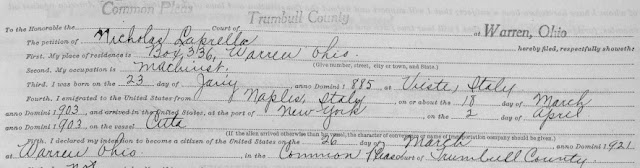 Common Pleas Trumbull County
To the Honorable the Court of at Warren, Ohio
The petition of Nicholas Laprella hereby filed, respectfully showeth:
First. My place of residence is Box 336, Warren Ohio.
(Give number, street, city or town, and State.)
Second. My occupation is Machinist.
Third. I was born on the 23 day of Jan'y anno Domini 1 885 at Vieste, Italy
Fourth. I emigrated to the United States from Naples, Italy on or about the 18 day of March
anno Domini 1 903 and arrived in the United States, at the port of New York on the 2 day of April
anno Domini 1 903 on the vessel Citta
(If the alien arrived otherwise than by vessel, the character of conveyance or name of transportation company should be given.)
Fifth. I declared my intention to become a citizen of the United States on the 26 day of March anno Domini 1 921
at Warren Ohio in the Common Pleas court of Trumbull County.
not